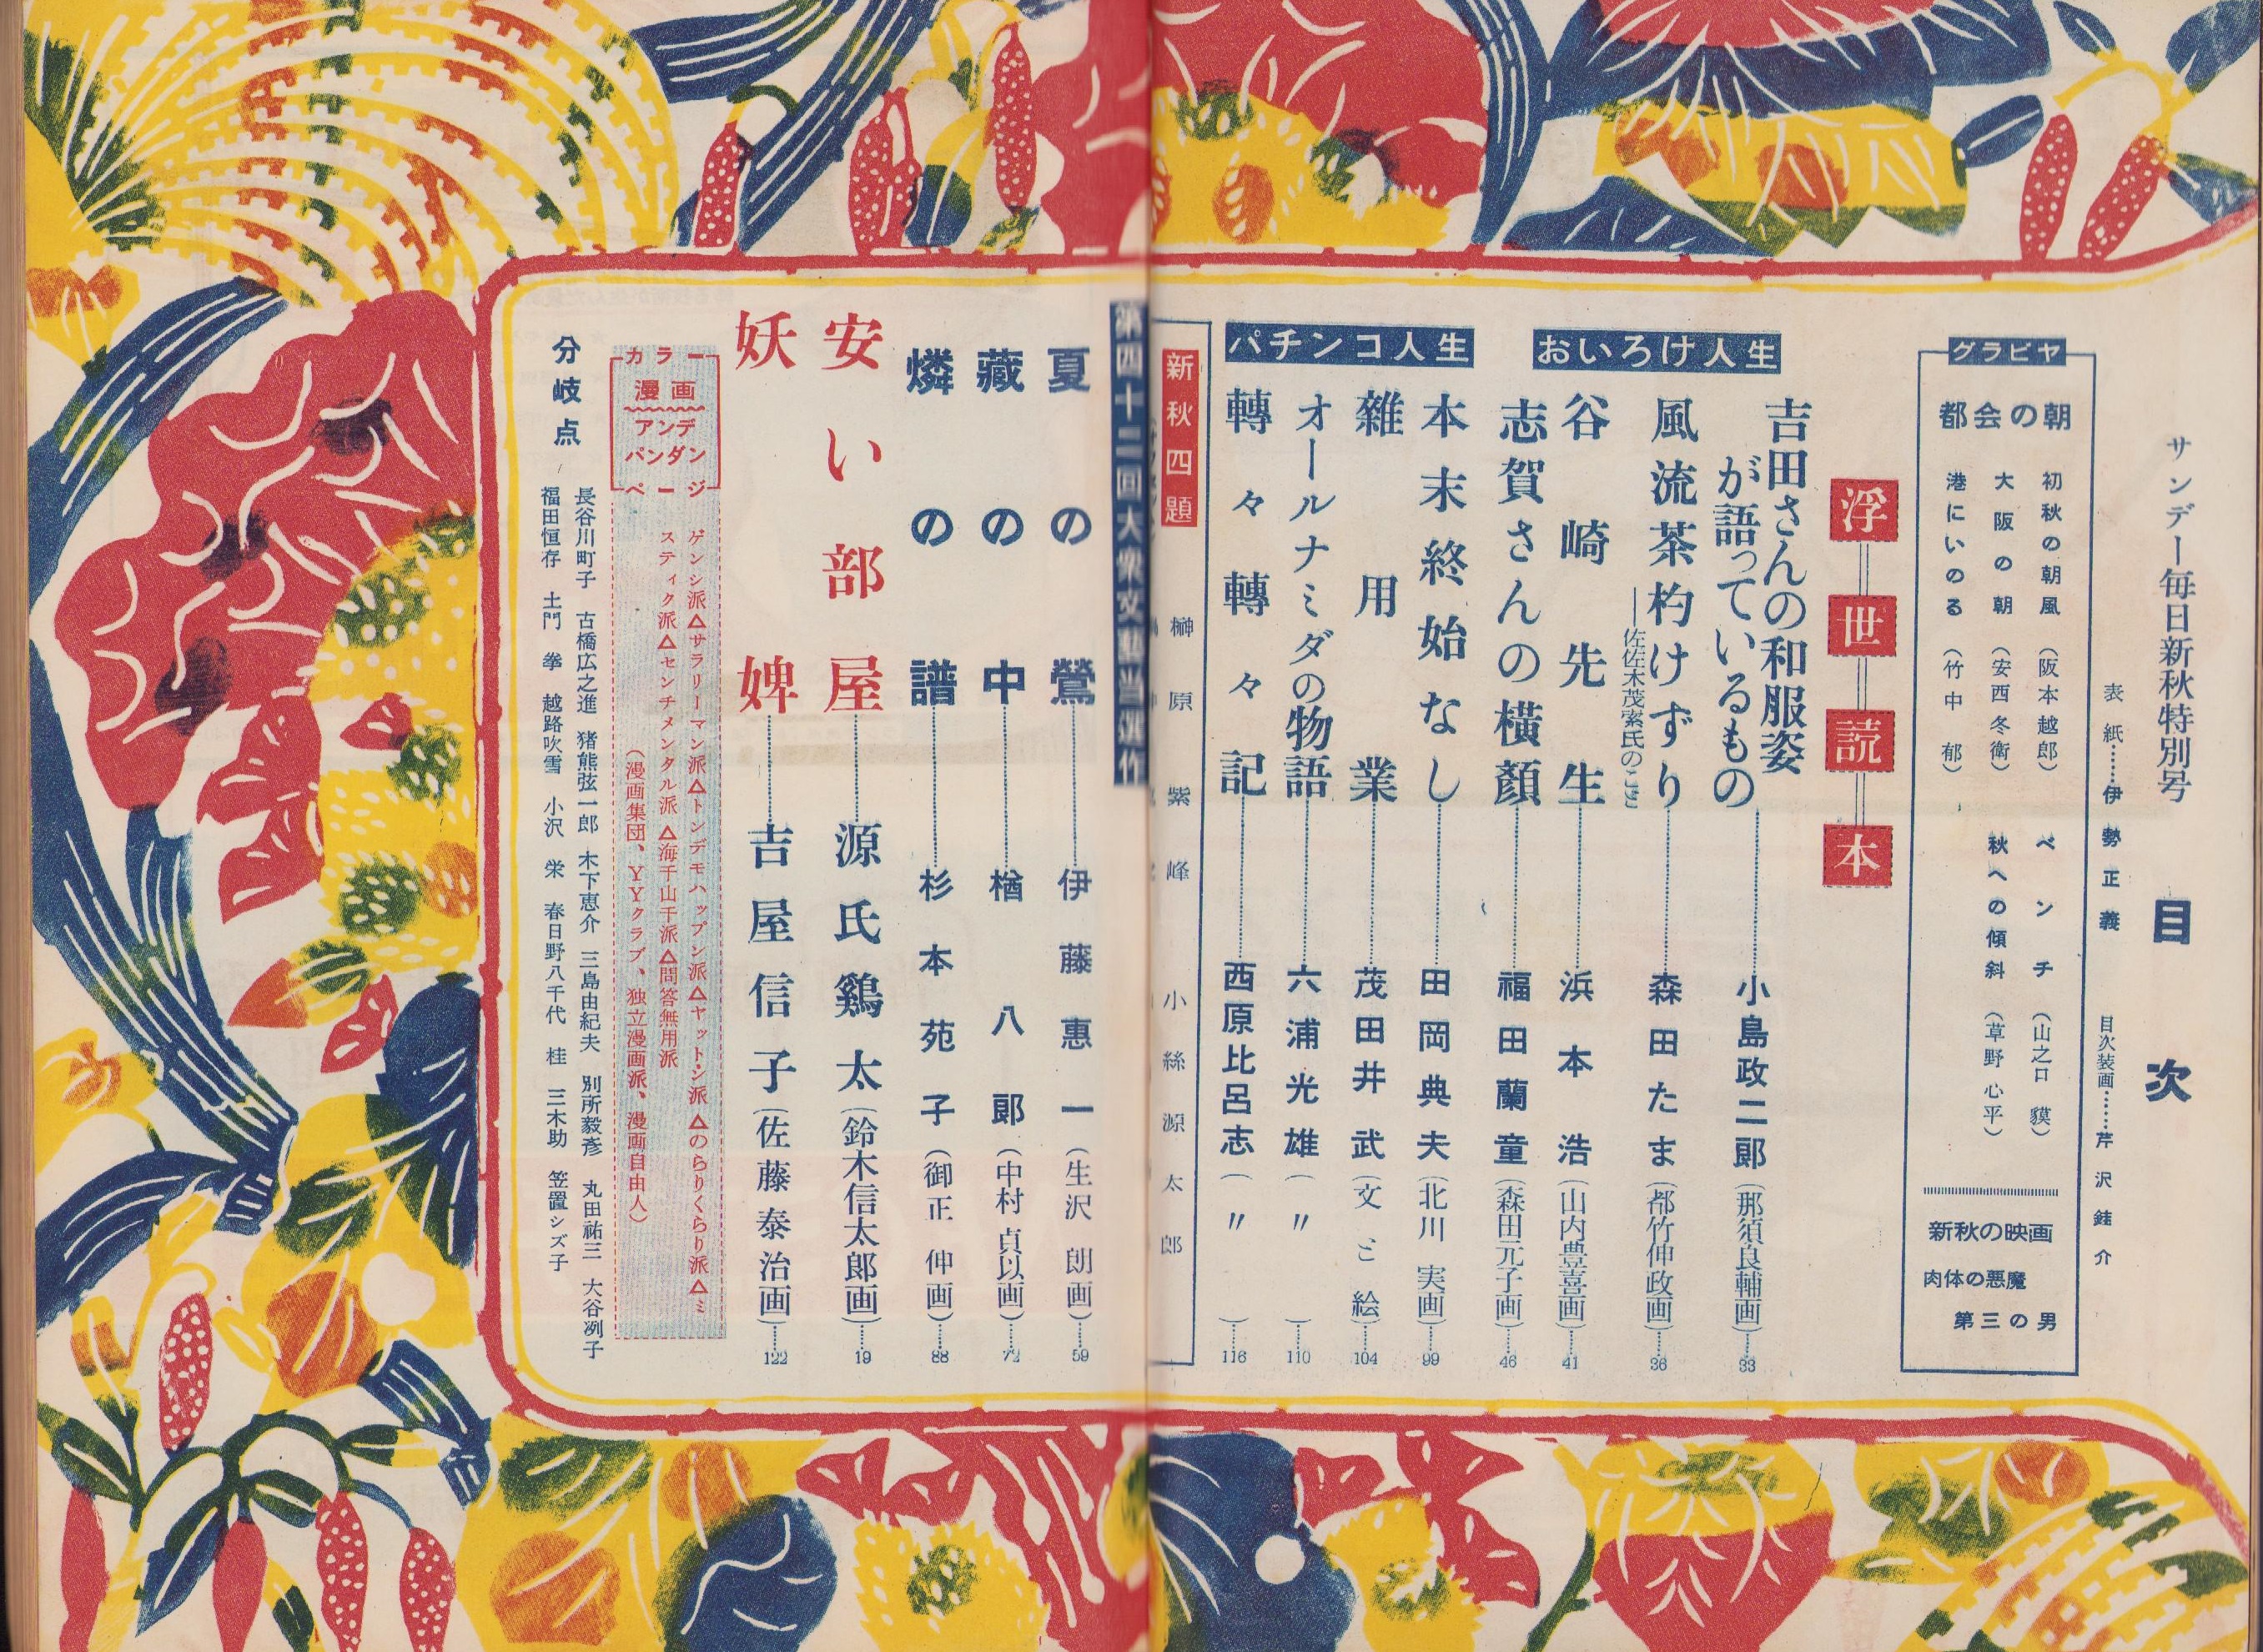 サンデー毎日新秋特別号
目次
表紙……伊勢正義
目次装画……芹沢銈介
グラビヤ
都会の朝
初秋の朝風（阪本越郎）
大阪の朝（安西冬衛）
港にいのる（竹中郁）
ベンチ（山之口貘）
秋への傾斜（草野心平）
新秋の映画
肉体の悪魔
第三の男
浮世読本
吉田さんの和服姿
が語っているもの……小島政二郎（那須良輔画）……33
おいろけ人生
風流茶杓けずり……森田たま（都竹伸政画）……36
―佐佐木茂索氏のこと
谷崎先生……浜本浩（山内豊喜画）……41
志賀さんの横顔……福田蘭童（森田元子画）……46
パチンコ人生
本末終始なし……田岡典夫（北川実画）……99
雑用業……茂田井武（文と絵）……104
オールナミダの物語……六浦光雄（〃）……110
轉々轉々記……西原比呂志（〃）……116
新秋四題
榊原紫峰
小絲源太郎
第四十二回大衆文藝当選作
夏の鶯……伊藤惠一（生沢朗画）……59
藏の中……楢八郎（中村貞以画）……72
燐の譜……杉本苑子（御正伸画）……88
安い部屋……源氏鶏太（鈴木信太郎画）……19
妖婢……吉屋信子（佐藤泰治画）……122
カラー
漫画
アンデ
パンダン
ページ
ゲンシ派△サラリーマン派△トンデモハップン派△ヤットシ派△のらりくらり派△ミ
スティク派△センチメンタル派△海千山千派△問答無用派
（漫画集団、YYクラブ、独立漫画派、漫画自由人）
分岐点
長谷川町子 古橋広之進 猪熊弦一郎 木下恵介 三島由紀夫 別所毅彦 丸田祐三 大谷冽子
福田恒存 土門拳 越路吹雪 小沢栄 春日野八千代 桂三木助 笠置シズ子